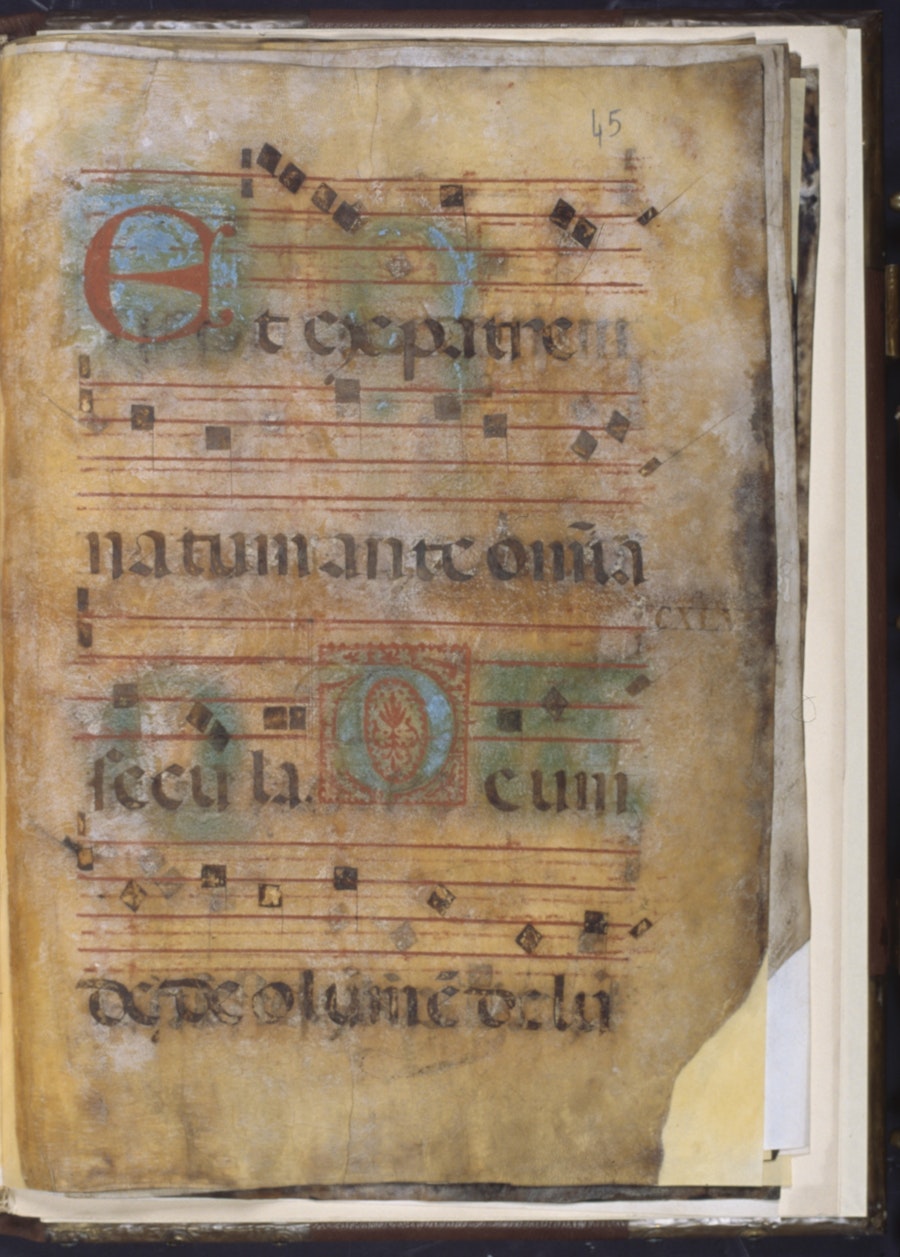 45
Et ex patrem
natum ante om̄ia
CXLV
secula. D cum
de de o lumē de lu